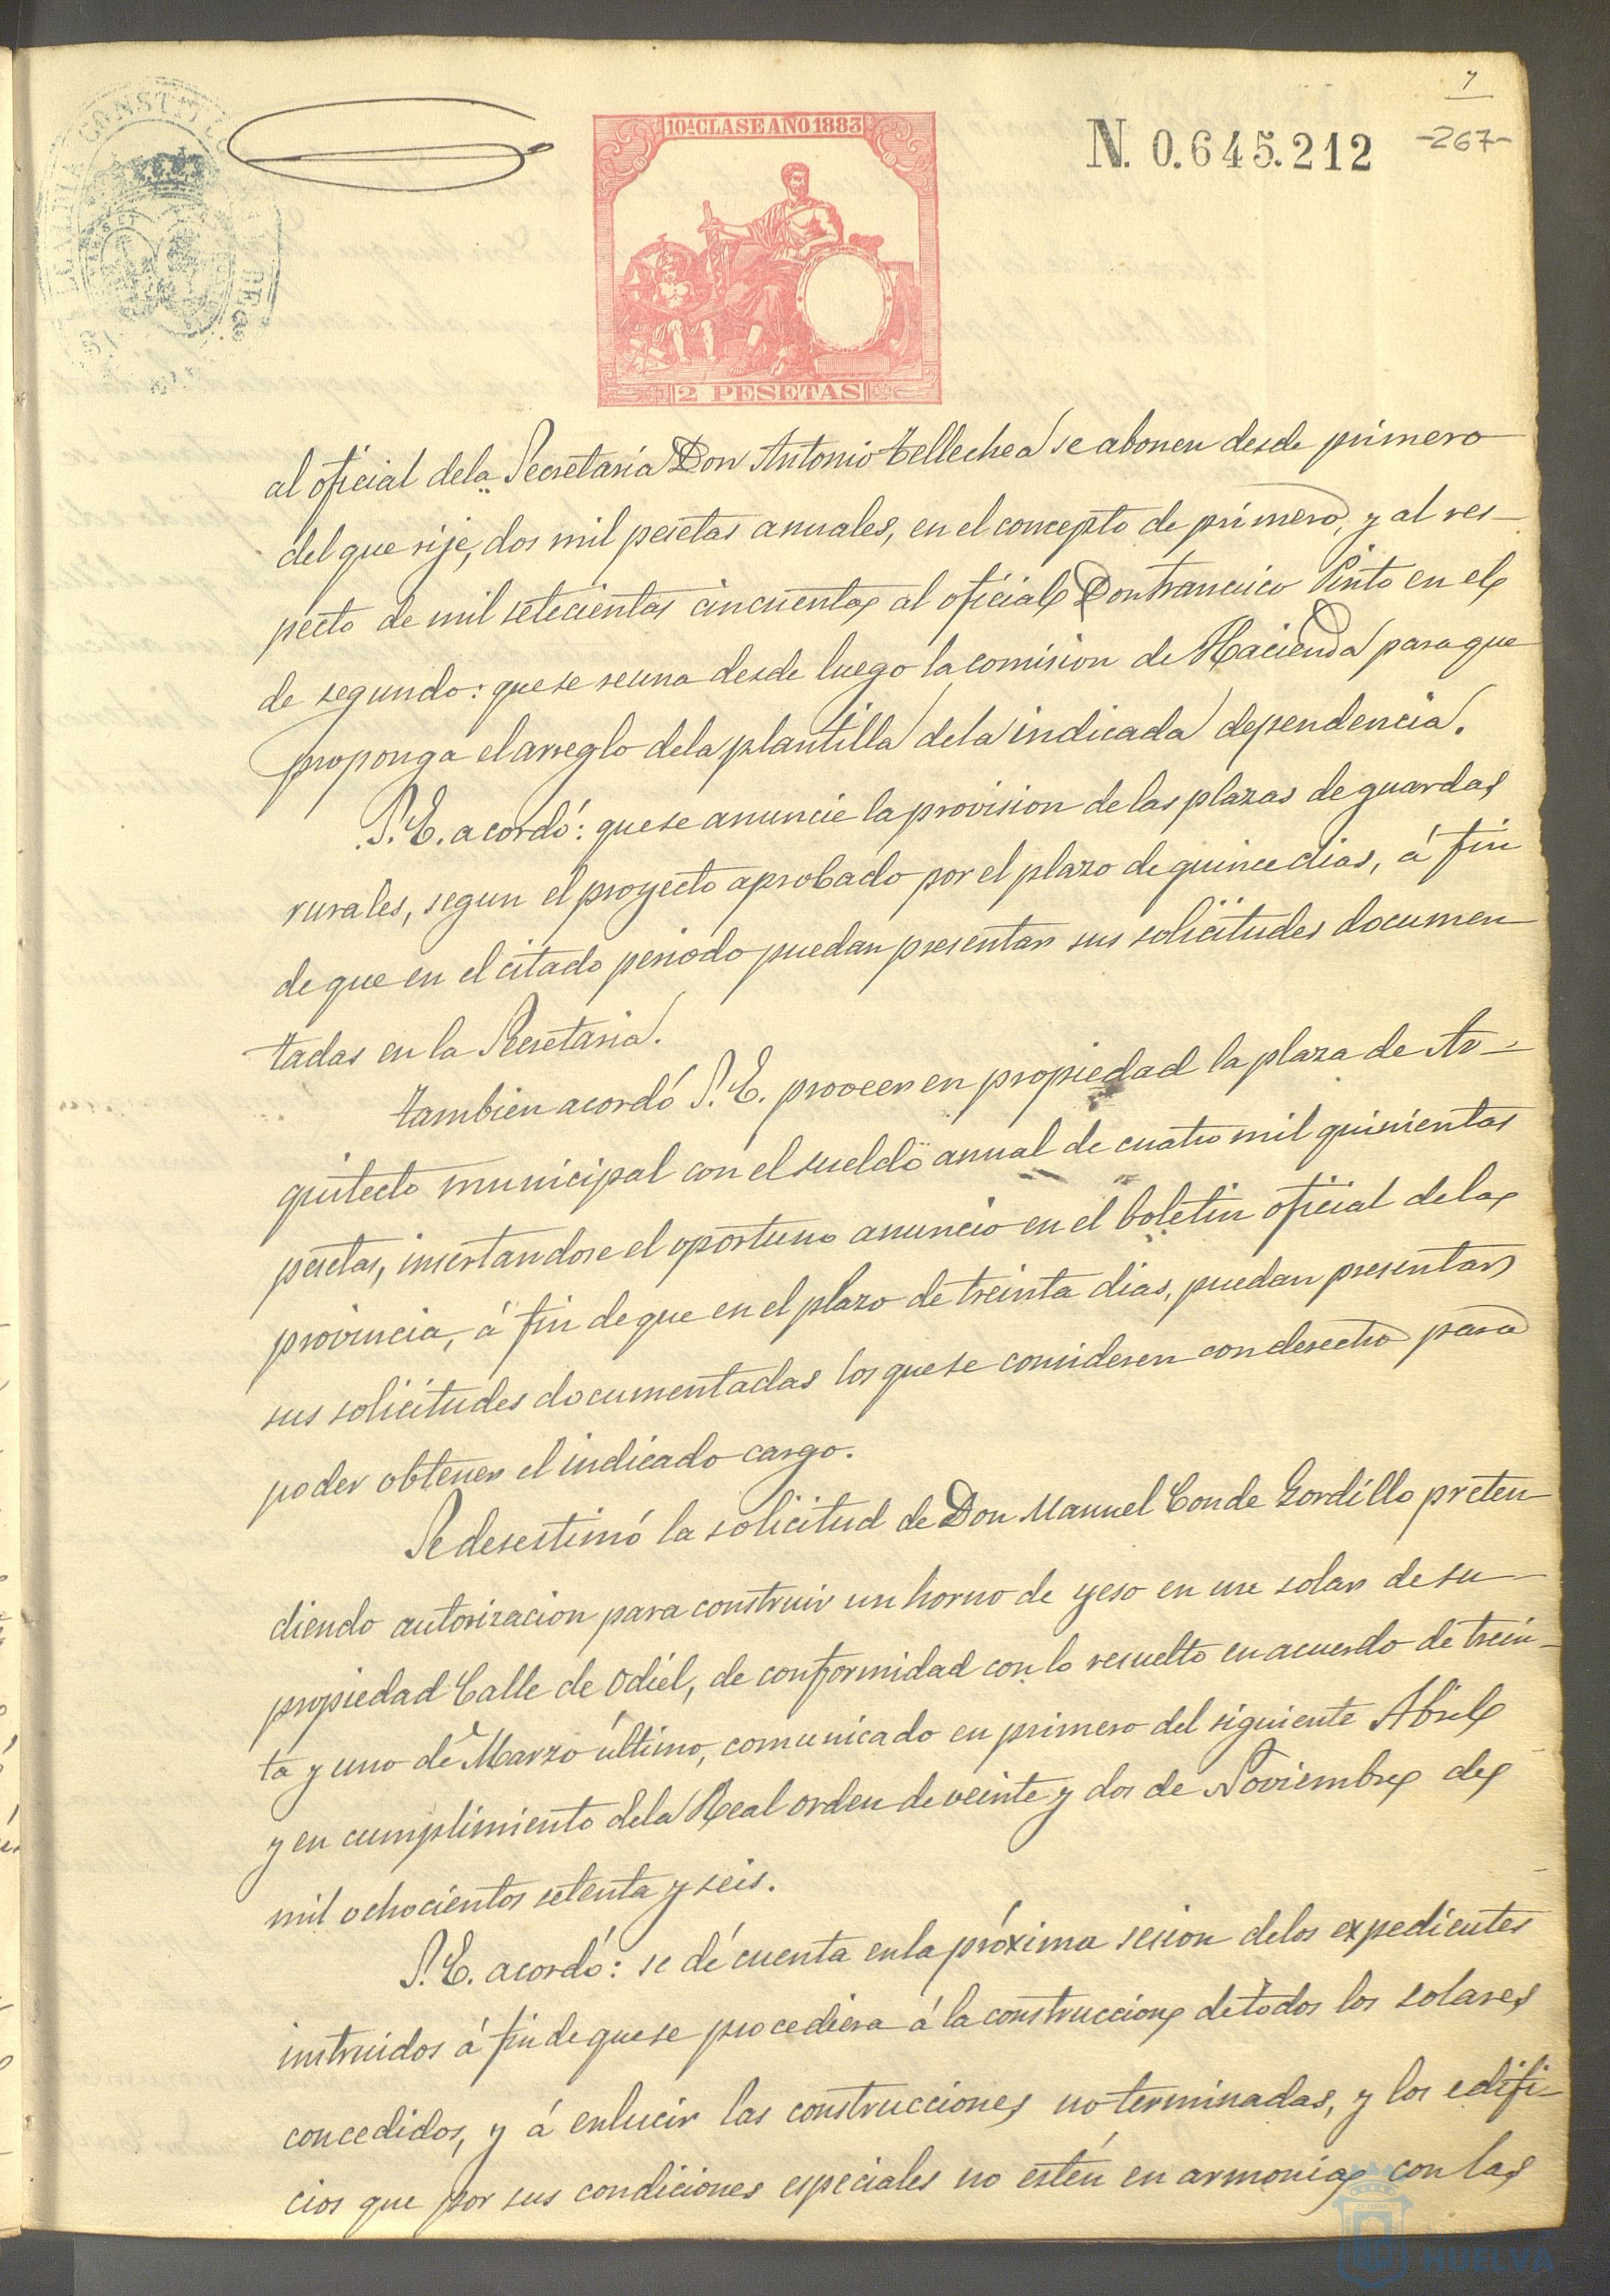 7
10ª CLASE AÑO 1883
N. 0.645.212
-267-
2 PESETAS
al oficial de la Secretaría Don Antonio Tellechea se abonen desde primero
del que rije, dos mil pesetas anuales, en el concepto de primero, y al res-
pecto de mil setecientas cincuenta al oficial Don Francisco Pinto en el
de segundo: que se reuna desde luego la comision de Hacienda para que
proponga el arreglo de la plantilla de la indicada dependencia.
S. E. acordó: que se anuncie la provision de las plazas de guardas
rurales, segun el proyecto aprobado por el plazo de quince dias, á fin
de que en el citado periodo puedan presentar sus solicitudes documen
tadas en la Secretaria.
Tambien acordó S. E. proveer en propiedad la plaza de Ar-
quitecto municipal con el sueldo anual de cuatro mil quinientas
pesetas, insertandose el oportuno anuncio en el boletin oficial de la
provincia, á fin de que en el plazo de treinta dias, puedan presentar
sus solicitudes documentadas los que se consideren con derecho para
poder obtener el indicado cargo.
Se desestimó la solicitud de Don Manuel Conde Gordillo preten
diendo autorizacion para construir un horno de yeso en un solar de su
propiedad Calle de Odiel, de conformidad con lo resuelto en acuerdo de trein-
ta y uno de Marzo último, comunicado en primero del siguiente Abril
y en cumplimiento de la Real orden de veinte y dos de Noviembre de
mil ochocientos setenta y seis.
S. E. acordó: se dé cuenta en la próxima sesion de los expedientes
instruidos á fin de que se procediera á la construccion de todos los solares
concedidos, y á enlucir las construcciones no terminadas, y los edifi-
cios que por sus condiciones especiales no estén en armonia con las
HUELVA